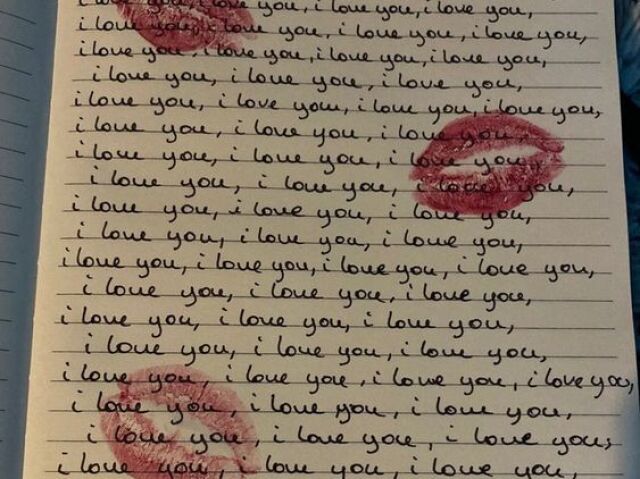 i love you, i love you, i love you, i love you,
i love you, i love you, i love you, i love you,
i love you, i love you, i love you, i love you,
i love you, i love you, i love you,
i love you, i love you, i love you, i love you,
i love you, i love you, i love you,
i love you, i love you, i love you,
i love you, i love you, i love you,
i love you, i love you, i love you,
i love you, i love you, i love you,
i love you, i love you, i love you, i love you,
i love you, i love you, i love you,
i love you, i love you, i love you,
i love you, i love you, i love you,
i love you, i love you, i love you, i love you,
i love you, i love you, i love you,
i love you, i love you, i love you,
i love you, i love you, i love you,